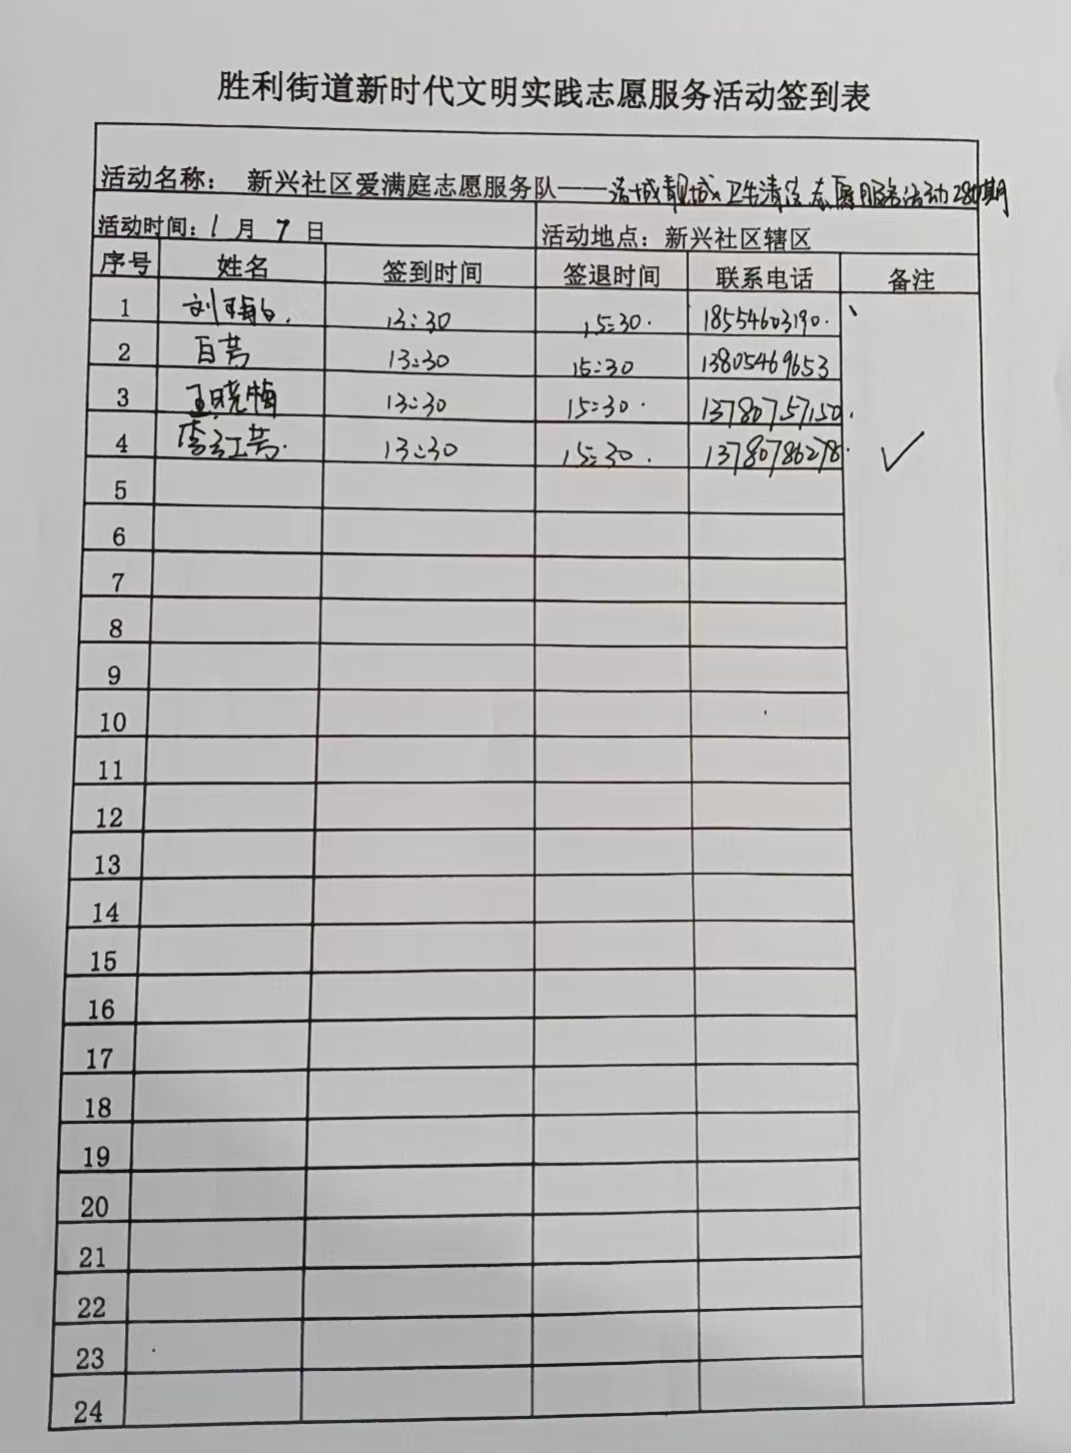 胜利街道新时代文明实践志愿服务活动签到表
活动名称： 新兴社区爱满庭志愿服务队——洁城靓城卫生清洁志愿服务活动280期
活动时间：1月7日 活动地点：新兴社区辖区
序号 姓名 签到时间 签退时间 联系电话 备注
1 刘 13:30 15:30. 18554603190.
2 百芳 13:30 15:30 13805469653
3 王晓梅 13:30 15:30. 13780757150.
4 李红芳. 13:30 15:30. 13780786278. ✓
5
6
7
8
9
10
11
12
13
14
15
16
17
18
19
20
21
22
23
24